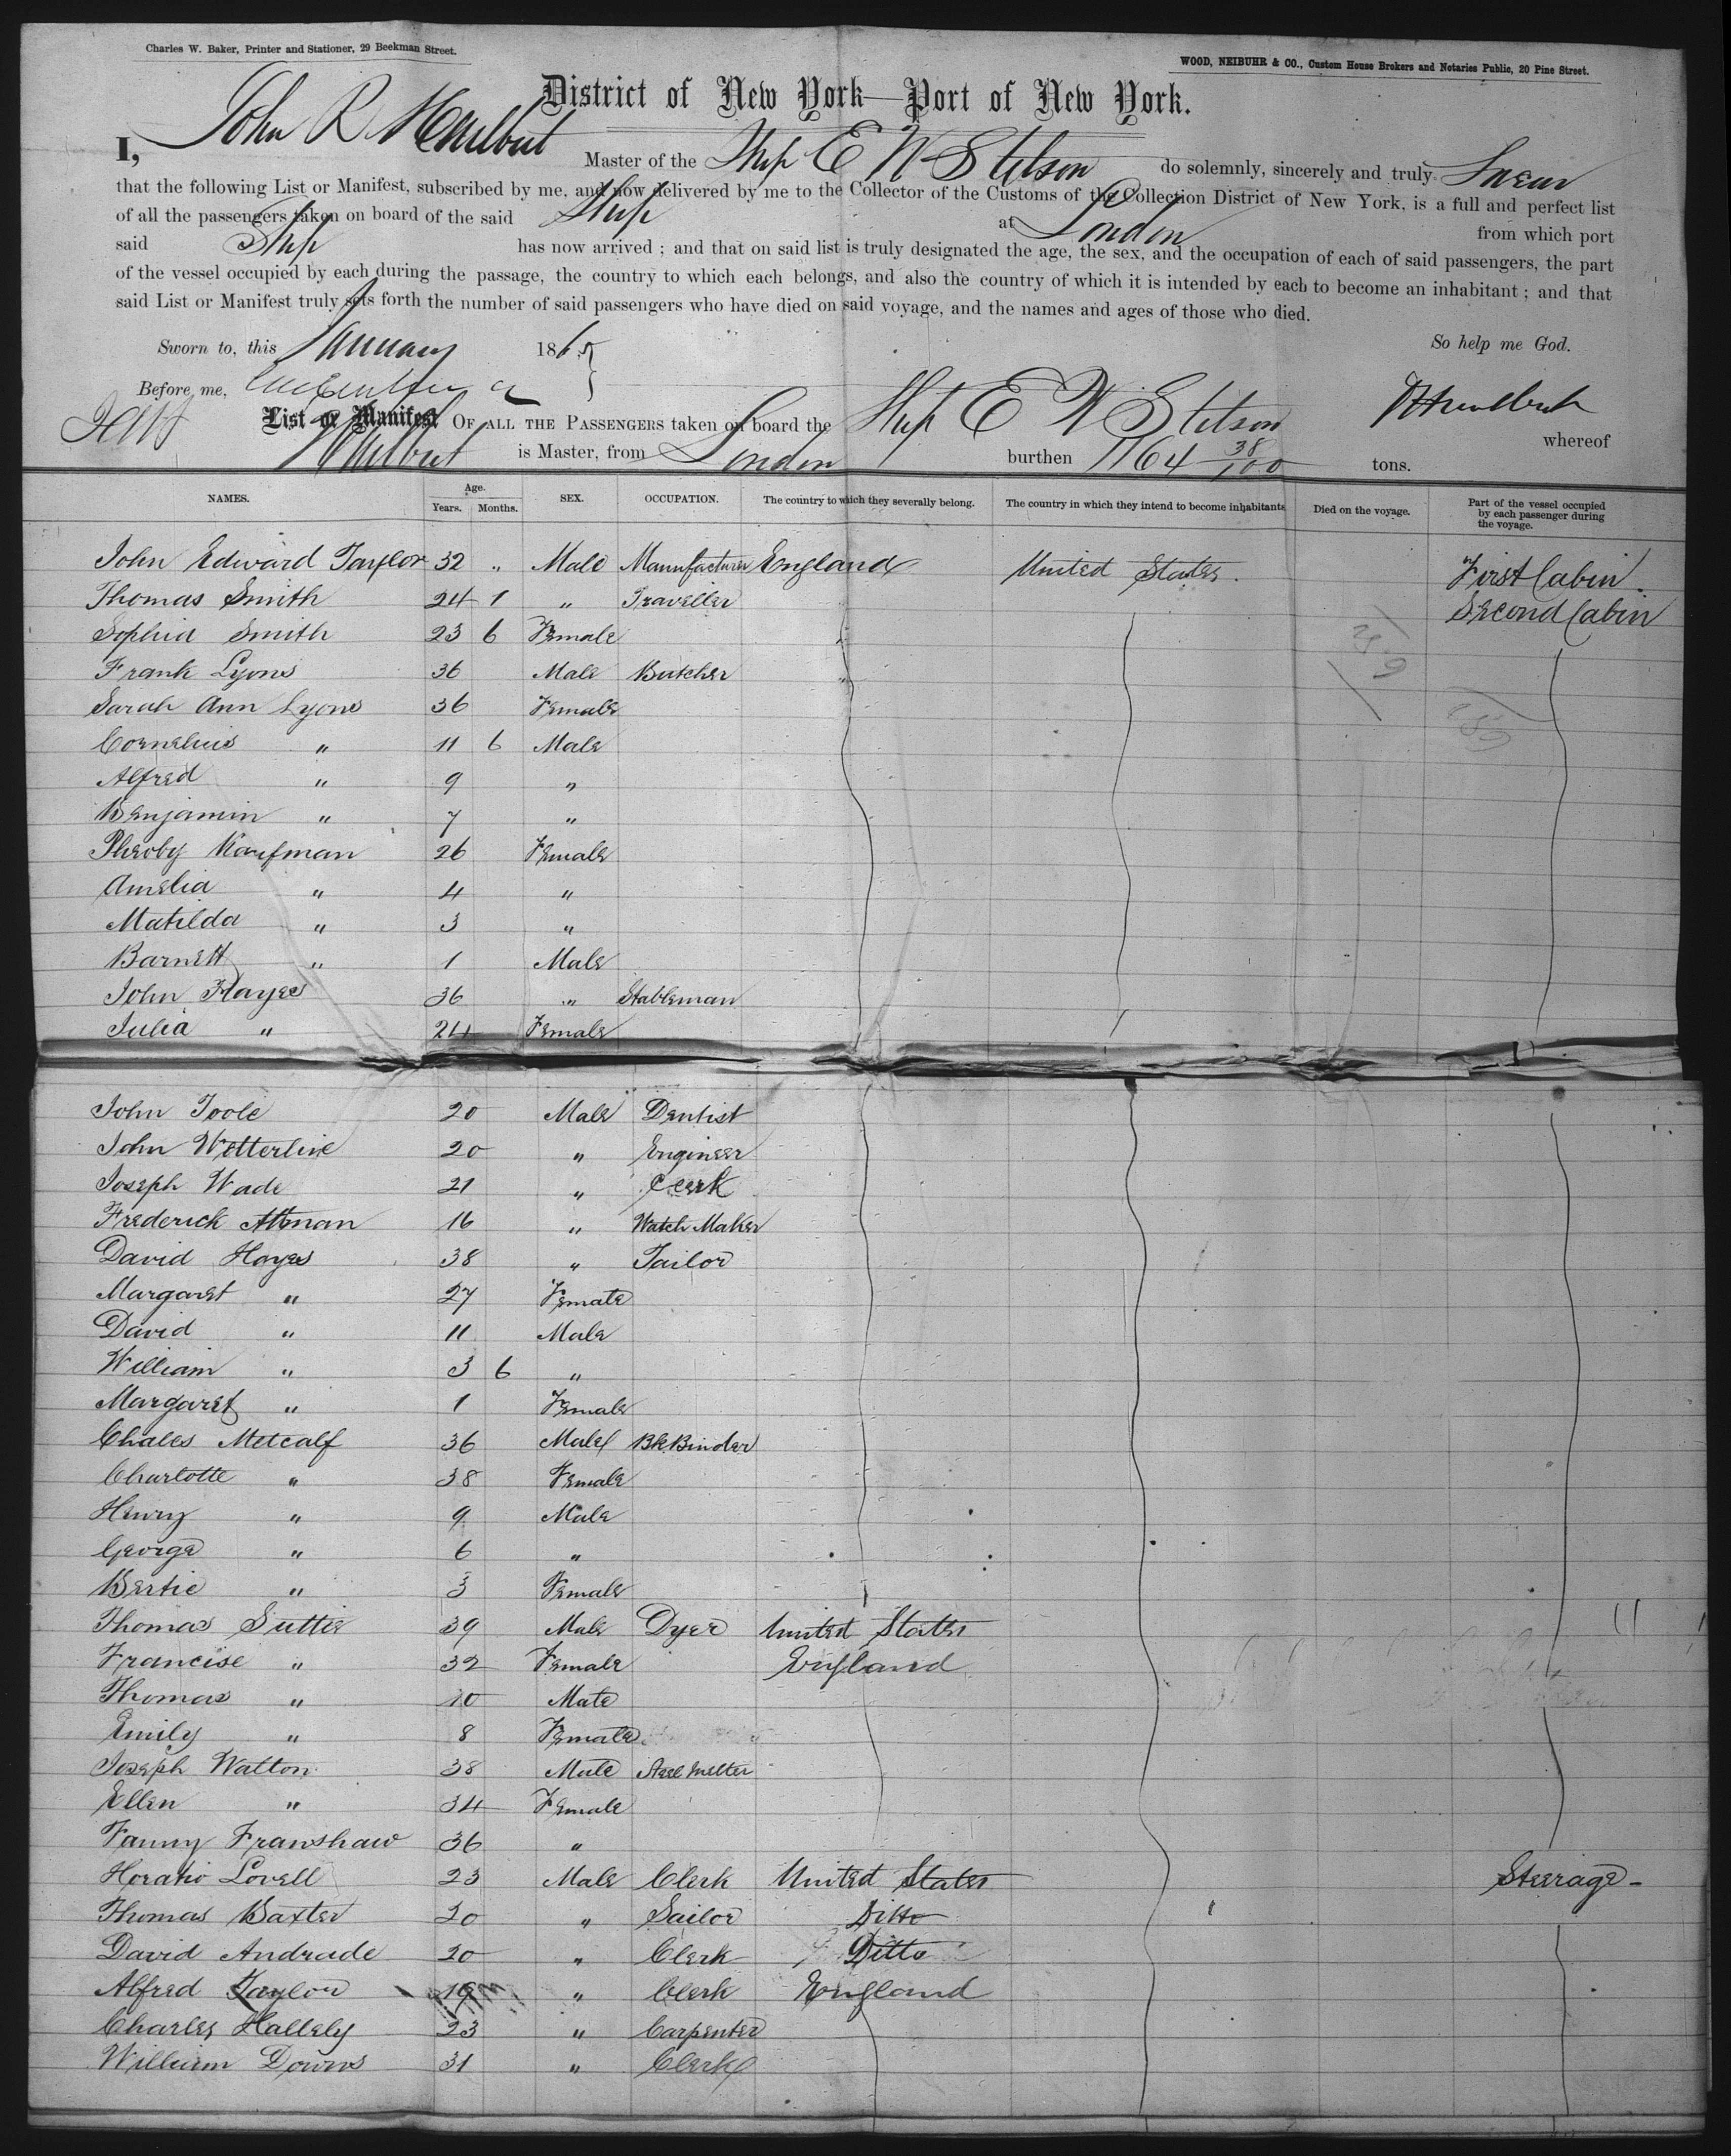 Charles W. Baker, Printer and Stationer, 29 Beekman Street.
WOOD, NEIBUHR & CO., Custom House Brokers and Notaries Public, 20 Pine Street.
District of New York—Port of New York.
I, John R Hurlbut Master of the Ship E W Stetson do solemnly, sincerely and truly Swear
that the following List or Manifest, subscribed by me, and now delivered by me to the Collector of the Customs of the Collection District of New York, is a full and perfect list
of all the passengers taken on board of the said Ship at London from which port
said Ship has now arrived ; and that on said list is truly designated the age, the sex, and the occupation of each of said passengers, the part
of the vessel occupied by each during the passage, the country to which each belongs, and also the country of which it is intended by each to become an inhabitant ; and that
said List or Manifest truly sets forth the number of said passengers who have died on said voyage, and the names and ages of those who died.
Sworn to, this January 1865 So help me God.
Before me,
List or Manifest OF ALL THE PASSENGERS taken on board the Ship E W Stetson whereof
Hurlbut is Master, from London burthen 1164 38/100 tons.
NAMES. Age. Years. Months. SEX. OCCUPATION. The country to which they severally belong. The country in which they intend to become inhabitants Died on the voyage. Part of the vessel occupied by each passenger during the voyage.
John Edward Taylor 32 " Male Manufacturer England United States. First Cabin
Thomas Smith 24 1 " Traveller Second Cabin
Sophia Smith 23 6 Female "
Frank Lyons 36 Male Butcher "
Sarah Ann Lyons 36 Female
Cornelius " 11 6 Male
Alfred " 9 "
Benjamin " 7 "
Pheoby Kaufman 26 Female
Amelia " 4 "
Matilda " 3 "
Barnett " 1 Male
John Hayes 36 " Stableman
Julia " 24 Female
John Toole 20 Male Dentist
John Wetterline 20 " Engineer
Joseph Wade 21 " Clerk
Frederick Altman 16 " Watch Maker
David Hayes 38 " Tailor
Margaret " 27 Female
David " 11 Male
William " 3 6 "
Margaret " 1 Female
Chales Metcalf 36 Male Bk Binder
Charlotte " 38 Female
Henry " 9 Male
George " 6 "
Bertie " 3 Female
Thomas Suttie 39 Male Dyer United States
Francise " 32 Female England
Thomas " 10 Male
Emily " 8 Female
Joseph Walton 38 Male Steel Melter
Ellen " 34 Female
Fanny Franshaw 36 "
Horatio Lovell 23 Male Clerk United States Steerage
Thomas Baxter 30 " Sailor Ditto
David Andrade 20 " Clerk Ditto
Alfred Taylor 19 " Clerk England
Charles Hallely 23 " Carpenter
William Downs 31 " Clerk